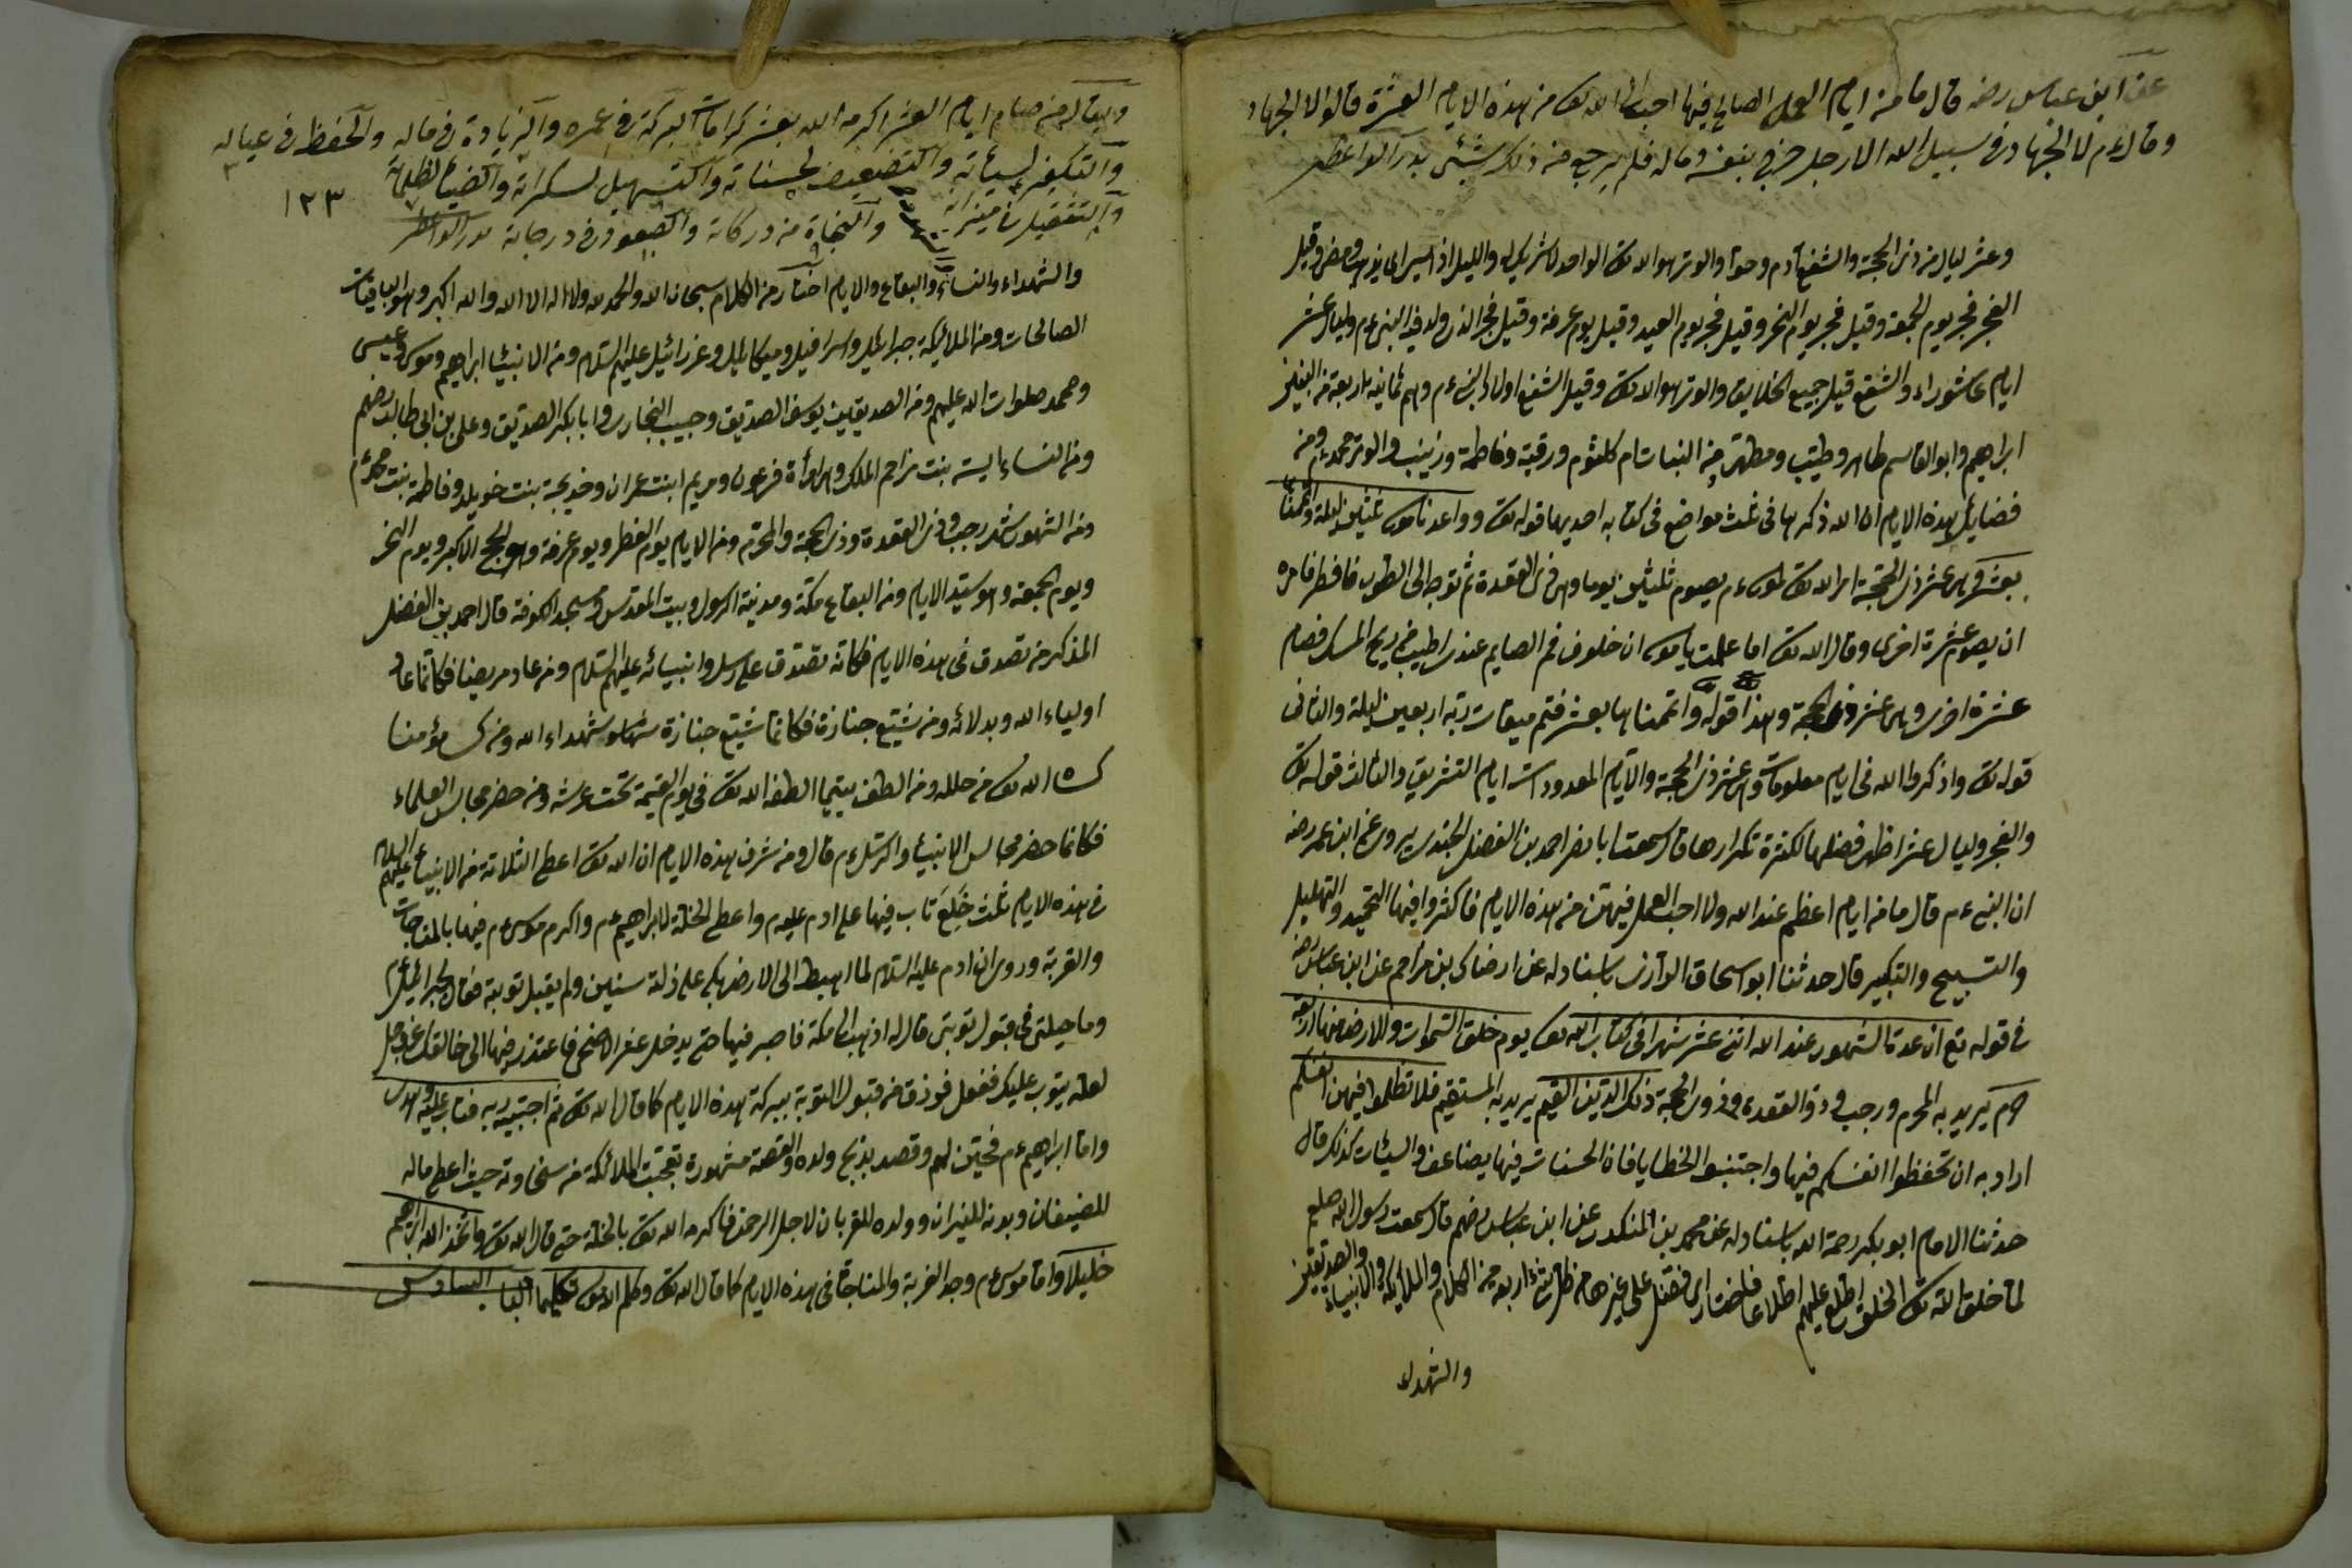 عن ابن عباس رضه قال ما من ايام العمل الصالح فيها احب الى الله تعا من هذه الايام العشرة قالوا لا الجهاد
وقال ءم لا الجهاد فى سبيل الله الا رجل خرج بنفسه وماله فلم يرجع من ذلك بشيئ بدر الواعظين
وعشر ليال من ذى الحجة والشفع آدم وحوا والوتر هو الله تعا الواحد لا شريك له والليل اذا يسر اى يذهب ويمضى وقيل
الفجر فجر يوم الجمعة وقيل فجر يوم النحر وقيل فجر يوم العيد وقيل يوم عرفة وقيل فجر الذى ولد فيه النبى ءم وليال عشر
ايام عاشوراء والشفع قيل جميع الخلايق والوتر هو الله تعا وقيل الشفع اولاد النبى ءم وهم ثمانية اربعة من البنين
ابراهيم وابو القاسم طاهر وطيب ومطهر ومن البنات ام كلثوم ورقية وفاطمة وزينب والوتر محمد ءم ومن
فضايل هذه الايام ان الله ذكرها فى ثلث مواضع فى كتابه احديها قوله تعا وواعدنا موسى ثلثين ليلة واتممناها
بعشر وهى عشر ذى الحجة امر الله تعا لموسى ءم يصوم ثلثين يوما وهى ذى القعدة ثم توجه الى الطور فافطر فامره
ان يصوم عشرة اخرى وقال الله تعا اما علمت يا موسى ان خلوف فم الصايم عندى اطيب من ريح المسك فصام
عشرة اخرى وهى عشر ذى الحجة وهذا قوله واتممناها بعشر فتم ميقات ربه اربعين ليلة والثانى
قوله تعا واذكروا الله فى ايام معلومات وهى عشر ذى الحجة والايام المعدودات ايام التشريق والثالث قوله تعا
والفجر وليال عشر اظهر فضلها لكثرة تكرارها قال سمعت ابا نصر احمد بن الفضل الجندى يروى عن ابن عمر رضه
ان النبى ءم قال ما من ايام اعظم عند الله ولا احب العمل فيهن من هذه الايام فاكثروا فيها التحميد والتهليل
والتسبيح والتكبير قال حدثنا ابو اسحاق الرازى باسناد له عن الضحاك بن مزاحم عن ابن عباس رضه
فى قوله تع ان عدة الشهور عند الله اثنى عشر شهرا فى كتاب الله تعا يوم خلق السموات والارض منها اربعة
حرم يريد به المحرم ورجب وذو القعدة وذو الحجة ذلك الدين القيم يريد به المستقيم فلا تظلموا فيهن انفسكم
اراد به ان تحفظوا انفسكم فيها واجتنبوا الخطايا فان الحسنات فيها يضاعف والسيئات كذلك قال
حدثنا الامام ابو بكر رحمة الله باسناد له عن محمد بن المنكدر عن ابن عباس رضهم قال سمعت رسول الله صلعم
لما خلق الله تعا الخلق اطلع عليهم اطلاعا فاختار اى فضل على غيرها من ظل شئ اربعة من الكلام والملايكة والانبياء والصديقين
والشهداء
ويقال من صام ايام العشر اكرمه الله بعشر كرامات البركة فى عمره والزيادة فى ماله والحفظ فى عياله
والتكفير لسيئاته والتضعيف لحسناته والتسهيل لسكراته والضياء لظلماته
١٢٣
والتثقيل فى ميزانه والنجاة من دركاته والصعود فى درجاته بدر الواعظين
والشهداء والنساء والبقاع والايام اختار من الكلام سبحان الله والحمد لله ولا اله الا الله والله اكبر وهو الباقيات
الصالحات ومن الملائكة جبرائيل واسرافيل وميكائيل وعزرائيل عليهم السلام ومن الانبيئا ابراهيم وموسى وعيسى
ومحمد صلوات الله عليهم ومن الصديقين يوسف الصديق وحبيب النجار وابا بكر الصديق وعلى بن ابى طالب رضهم
ومن النساء اسية بنت مزاحم الملك وهى امرأة فرعون ومريم ابنت عمران وخديجة بنت خويلد وفاطمة بنت محمد ءم
ومن الشهور شهر رجب وذى القعدة وذى الحجة والمحرم ومن الايام يوم الفطر ويوم عرفة وهو الحج الاكبر ويوم النحر
ويوم الجمعة وهو سيد الايام ومن البقاع مكة ومدينة الرسول وبيت المقدس ومسجد الكوفة قال احمد بن الفضل
المذكر من تصدق فى هذه الايام فكانه تصدق على رسل وانبيائه عليهم السلام ومن عاد مريضا فكانما عاد
اولياء الله وبدلائه ومن شيع جنازة فكانما شيع جنازة شهداء الله ومن كسى مؤمنا
كساه الله تعا من حلله ومن الطف يتيما الطفه الله تعا فى يوم القيمة تحت عرشه ومن حضر مجالس العلماء
فكانما حضر مجالس الانبيئا والرسل ءم قال ومن شرف هذه الايام ان الله تعا اعطى الثلاثة من الانبيئا عليهم السلام
فى هذه الايام ثلث خلع تاب فيها على ادم عليهم واعطى الخلة لابراهيم ءم واكرم موسى ءم فيها بالمناجات
والقربة وروى ان ادم عليه السلام لما اهبط الى الارض بكى على زلة سنين ولم يقبل توبته فقال لجبرائيل ءم
وما حيلتى فى قبول توبتى قال له اذهب الى مكة فاصبر فيها حتى يدخل عشر الاضحى فاعتذر فيها الى خالقك عز وجل
لعله يتوب عليك ففعل فرزق من قبول التوبة ببركة هذه الايام كما قال الله تعا ثم اجتبيه ربه فتاب عليه وهدى
واما ابراهيم ءم فحين لهم وقصد بذبح ولده والقصة مشهورة تعجبت الملائكة من سخاوته حيث اعطى ماله
للضيفان وبدنه للنيران وولده للقربان لاجل الرحمن فاكرمه الله تعا بالخلة حتى قال الله تعا واتخذ الله ابراهيم
خليلا واما موسى ءم وجد القربة والمناجة فى هذه الايام كما قال الله تعا وكلم الله موسى تكليما الباب السادس